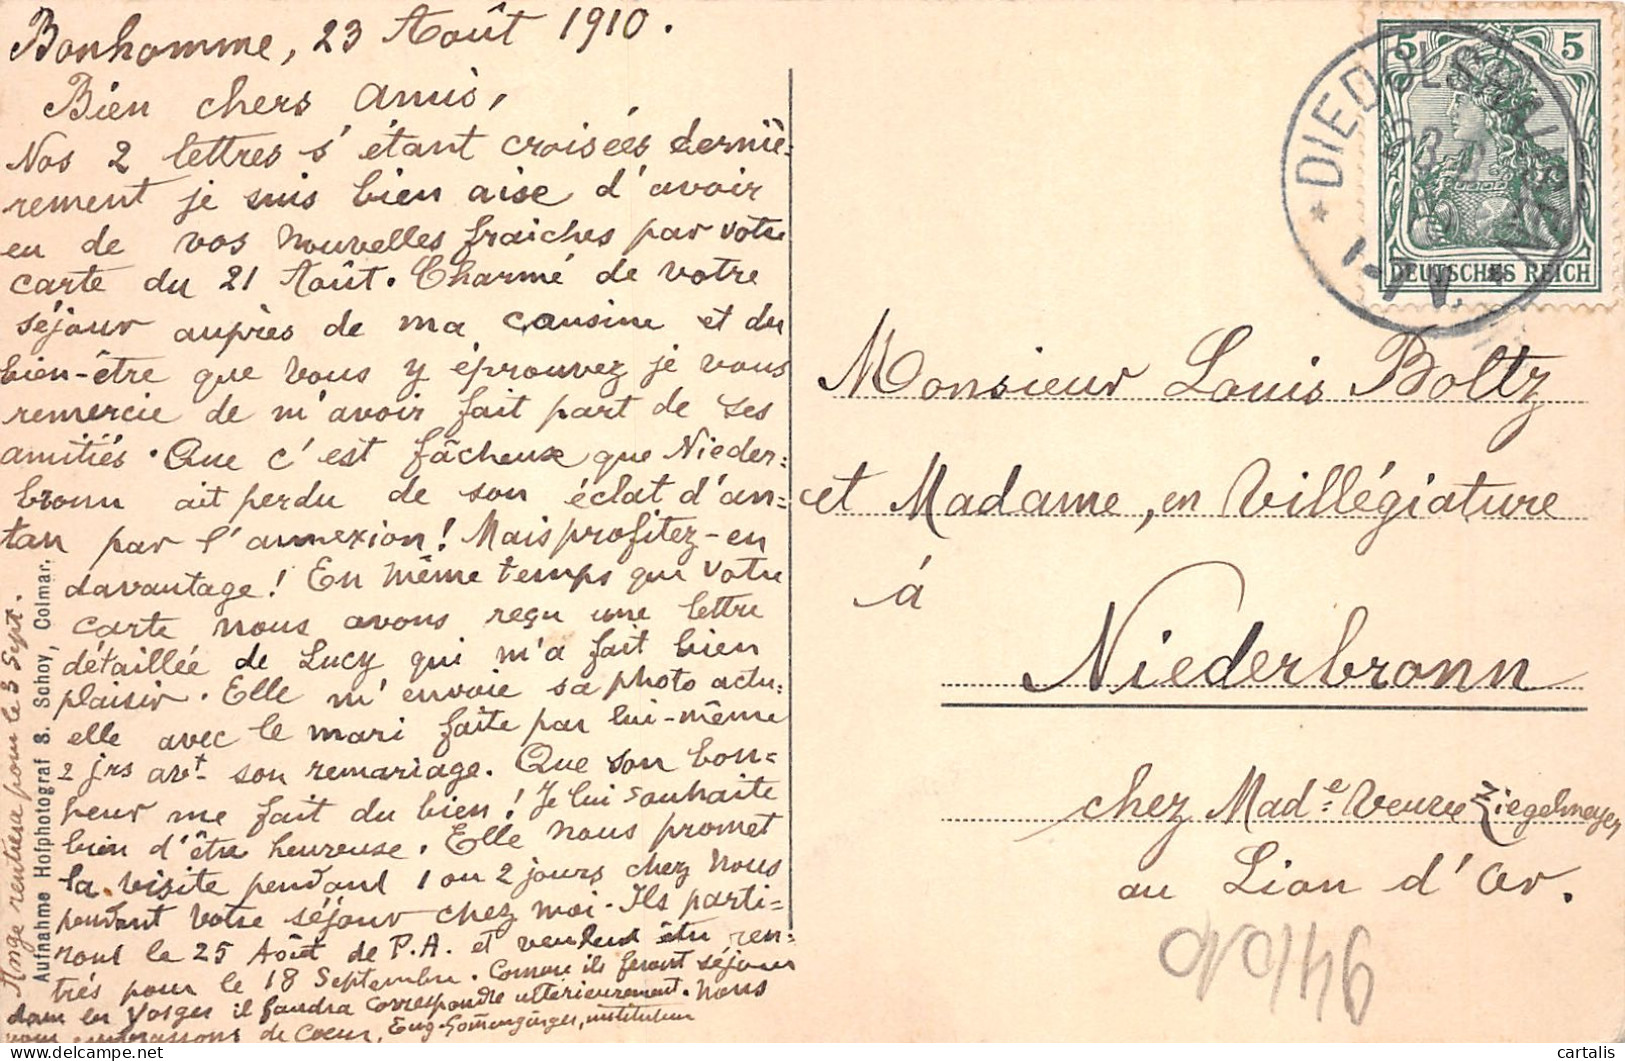 Bonhomme, 23 Août 1910.
Bien chers amis,
Nos 2 lettres s'étant croisées derniè=
rement je suis bien aise d'avoir
eu de vos nouvelles fraiches par votre
carte du 21 Août. Charmé de votre
séjour auprès de ma cousine et du
bien-être que vous y éprouvez je vous
remercie de m'avoir fait part de ses
amitiés. Que c'est fâcheux que Nieder=
bronn ait perdu de son éclat d'an=
tan par l'annexion! Mais profitez-en
davantage! En même temps que votre
carte nous avons reçu une lettre
détaillée de Lucy qui m'a fait bien
plaisir. Elle m'envoie sa photo actu=
elle avec le mari faite par lui-même
2 jrs avt son remariage. Que son bon=
heur me fait du bien! Je lui souhaite
bien d'être heureuse. Elle nous promet
la visite pendant 1 ou 2 jours chez nous
pendant votre séjour chez moi. Ils parti=
ront le 25 Août de P.A. et veulent être ren=
trés pour le 18 Septembre. Comme ils feront séjour
dans les Vosges il faudra correspondre ultérieurement. Nous
vous embrassons de coeur, Eug.
instituteur
Ange rentrera pour le 3 Sept.
Aufnahme Hofphotograf S. Schoy, Colmar.
5 5
DEUTSCHES REICH
* DIEDOLSHAUSEN
1-7 N.
Monsieur Louis Boltz
et Madame, en Villégiature
à
Niederbronn
chez Made Veuve Ziegelmeyer
au Lion d'Or.
cartalis